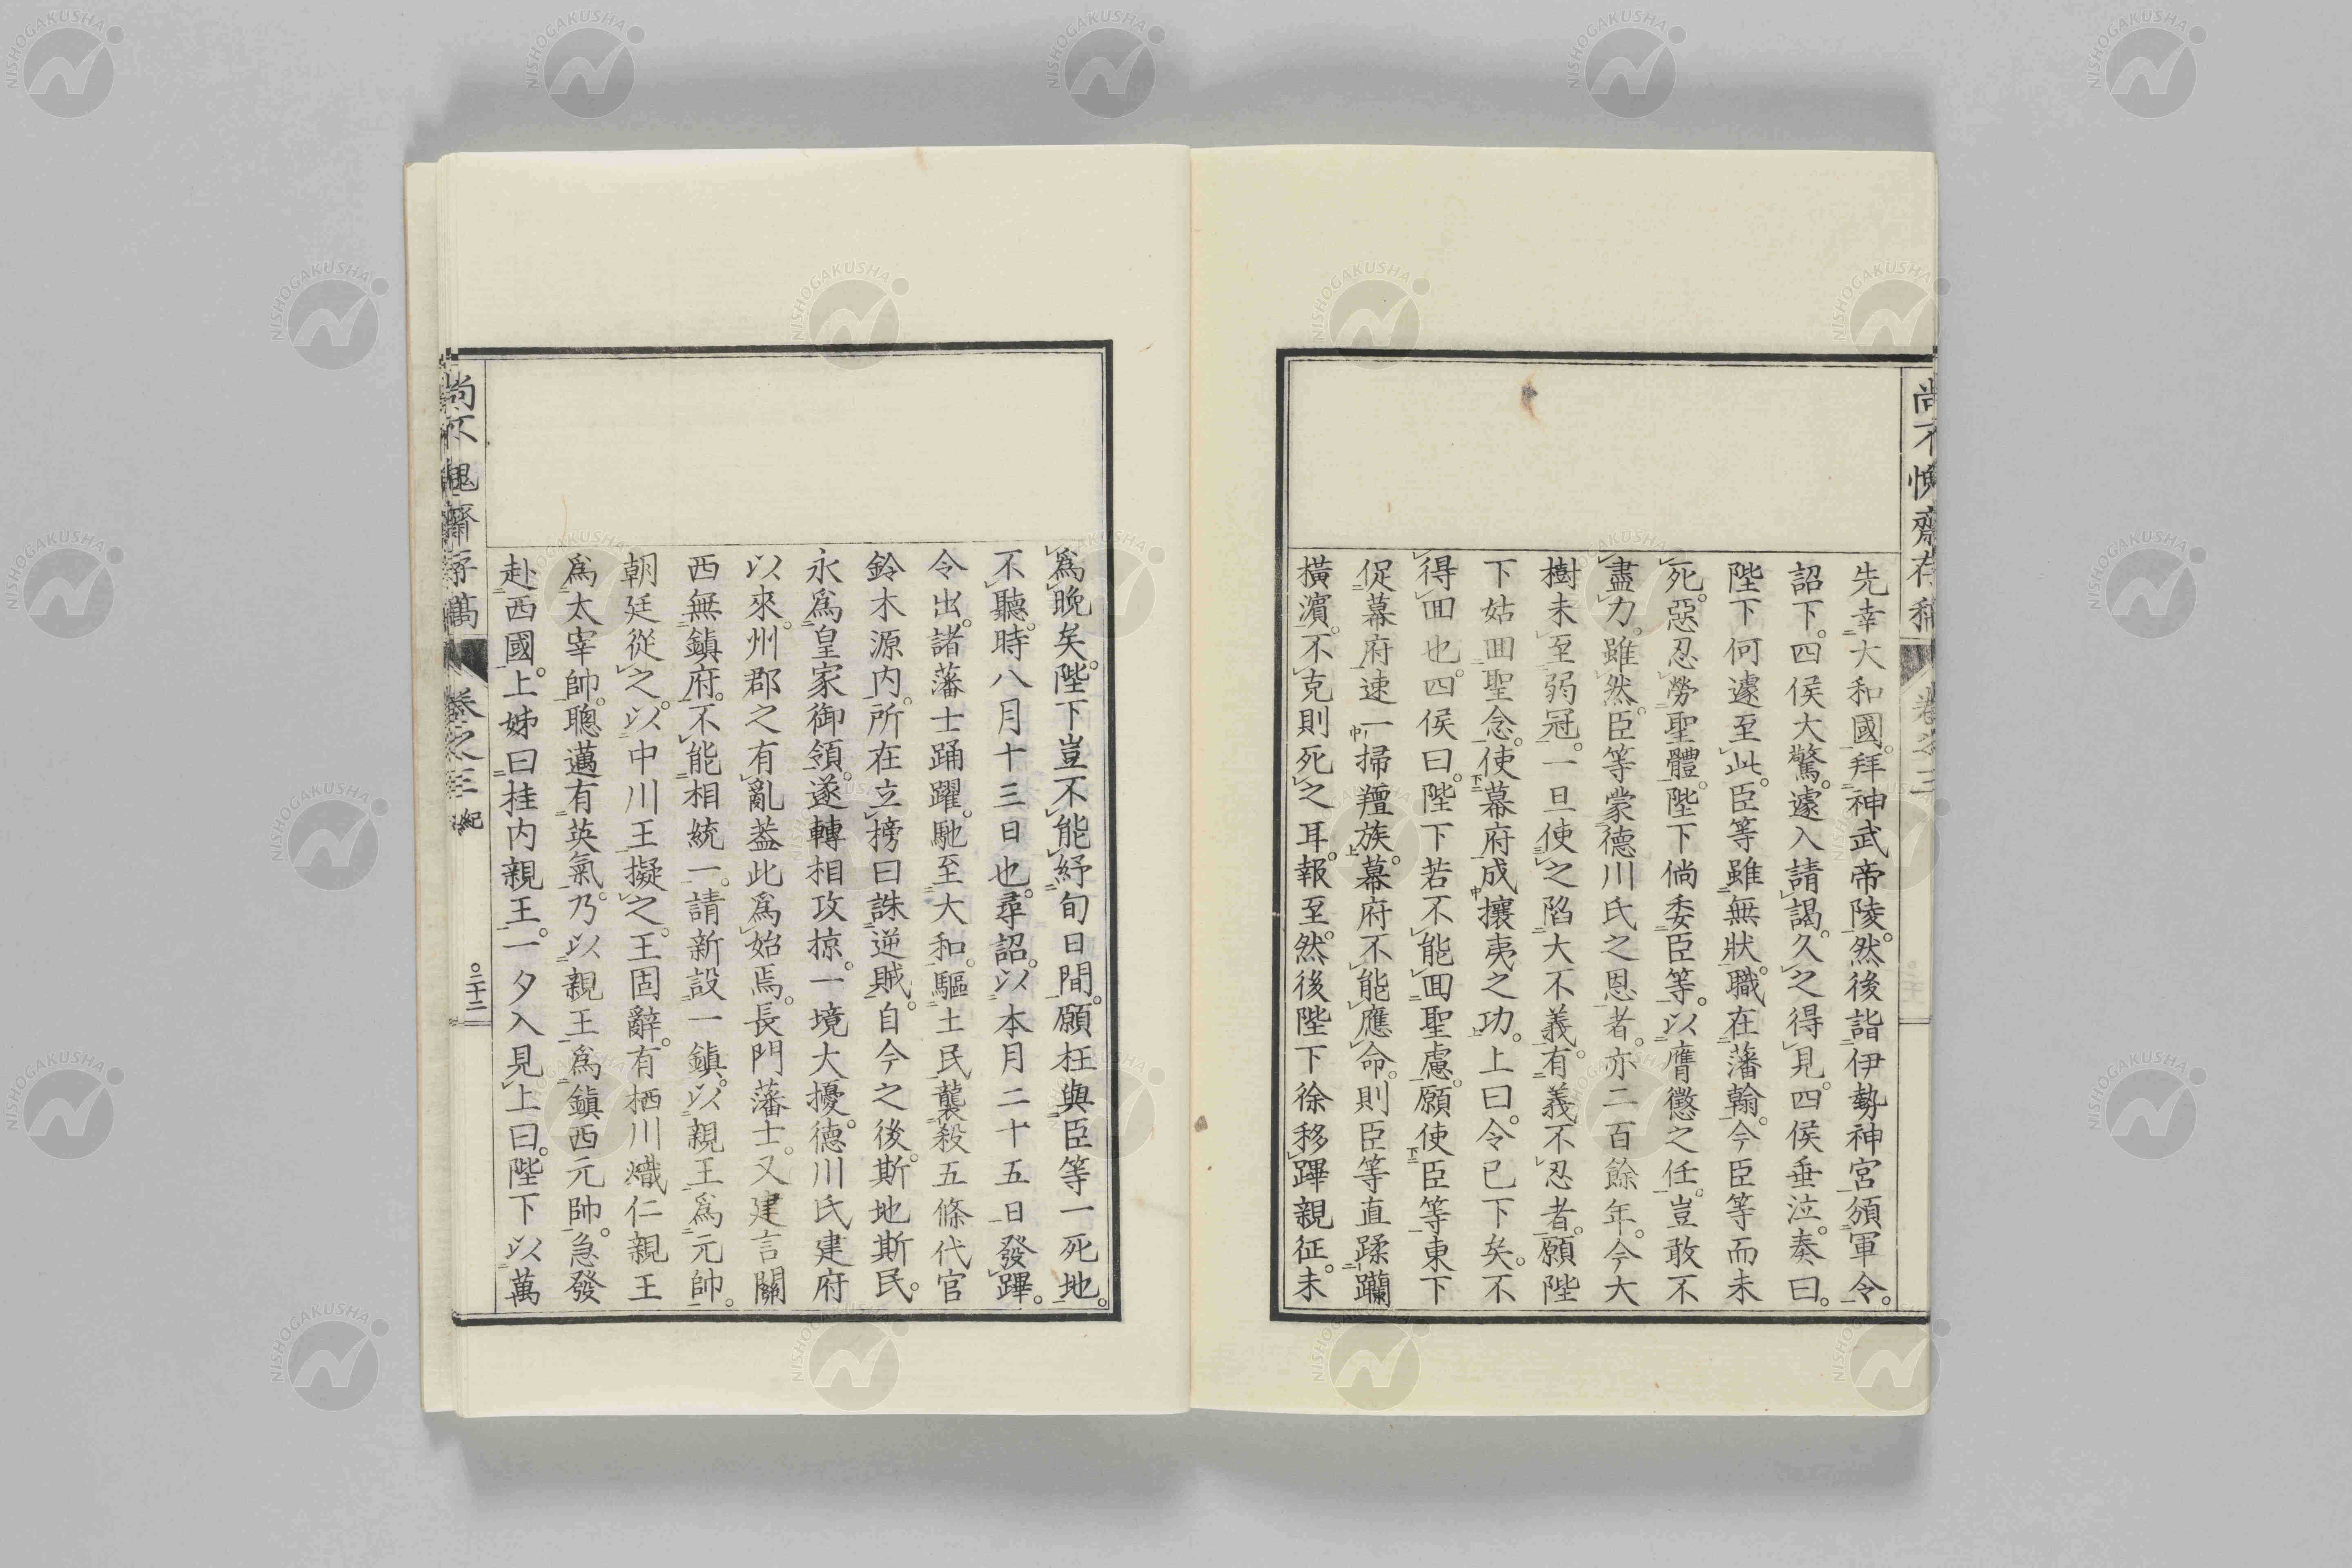 先幸大和國。拜神武帝陵。然後詣伊勢神宮頒軍令。
詔下。四侯大驚。遽入請謁。久之得見。四侯垂泣。奏曰。
陛下何遽至此。臣等雖無狀。職在藩翰。今臣等而未
死。惡忍勞聖體。陛下倘委臣等。以膺懲之任。豈敢不
盡力。雖然。臣等蒙德川氏之恩者。亦二百餘年。今大
樹未至弱冠。一旦使之陷大不義。有義不忍者。願陛
下姑回聖念。使幕府成攘夷之功。上曰。令已下矣。不
得回也。四侯曰。陛下若不能回聖慮。願使臣等東下
促幕府速一掃羶族。幕府不能應命。則臣等直蹂躪
橫濱。不克則死之耳。報至。然後陛下徐移蹕親征。未
爲晚矣。陛下豈不能紓旬日間。願枉與臣等一死地。
不聽。時八月十三日也。尋詔。以本月二十五日發蹕。
令出。諸藩士踊躍。馳至大和。驅土民襲殺五條代官
鈴木源内。所在立榜曰誅逆賊。自今之後。斯地斯民。
永爲皇家御領。遂轉相攻掠。一境大擾。德川氏建府
以來。州郡之有亂葢此爲始焉。長門藩士。又建言關
西無鎭府。不能相統一。請新設一鎭。以親王爲元帥。
朝廷從之。以中川王擬之。王固辭。有栖川熾仁親王
爲太宰帥。聰邁有英氣。乃以親王爲鎭西元帥。急發
赴西國。上姊曰挂内親王。一夕入見上曰。陛下以萬
尚不愧齋存稿 卷之三 紀 〇二十二